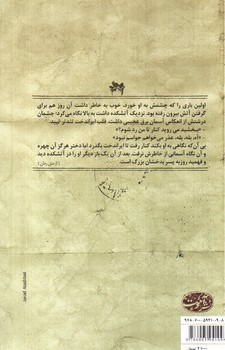 اولین باری را که چشمش به او خورد، خوب به خاطر داشت. آن روز هم برای
گرفتن آتش بیرون رفته بود. نزدیک آتشکده داشت به بالا نگاه می‌کرد؛ چشمان
درشتش از انعکاس آسمان برق عجیبی داشت. قلب ایراندخت تندتر تپید.
«ببخشید می روید کنار تا من رد شوم؟»
«آه، بله، بله، عذر می‌خواهم! حواسم نبود.»
بی‌آن‌که نگاهی به او بکند کنار رفت تا ایراندخت بگذرد اما دختر هرگز آن چهره
و آن نگاه آسمانی از خاطرش نرفت. بعد از آن یک بار دیگر او را در آتشکده دید
و فهمید روزبه پسر بدخشان بزرگ است.
(از متن رمان)